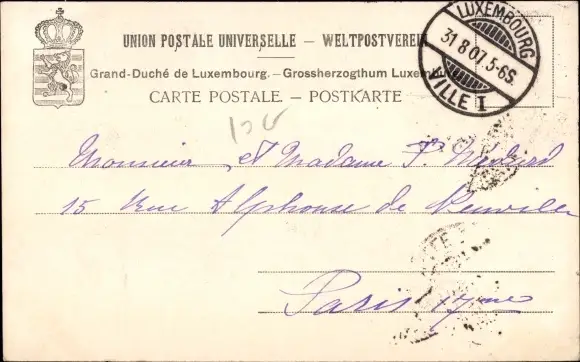 UNION POSTALE UNIVERSELLE — WELTPOSTVEREIN
Grand-Duché de Luxembourg. — Grossherzogthum Luxembu
CARTE POSTALE. — POSTKARTE
LUXEMBOURG
31.8.07. 5-6S.
VILLE I
Monsieur et Madame
15 Rue Alphonse de Neuville
Paris 17me